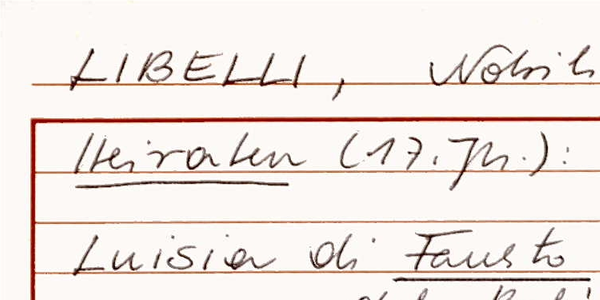 LIBELLI, Nobili
Heiraten (17. Jh.):
Luisia di Fausto